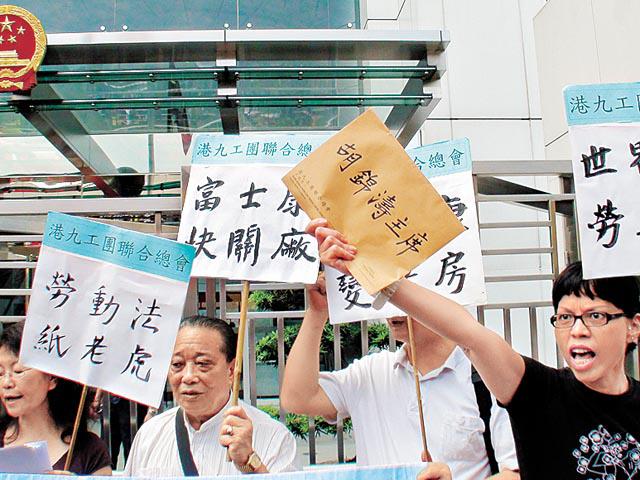 港九工團聯合總會
勞動法
紙老虎
港九工團聯合總
富士康
快關廠
胡錦濤主席
合總會
變
房
港九工
世
勞